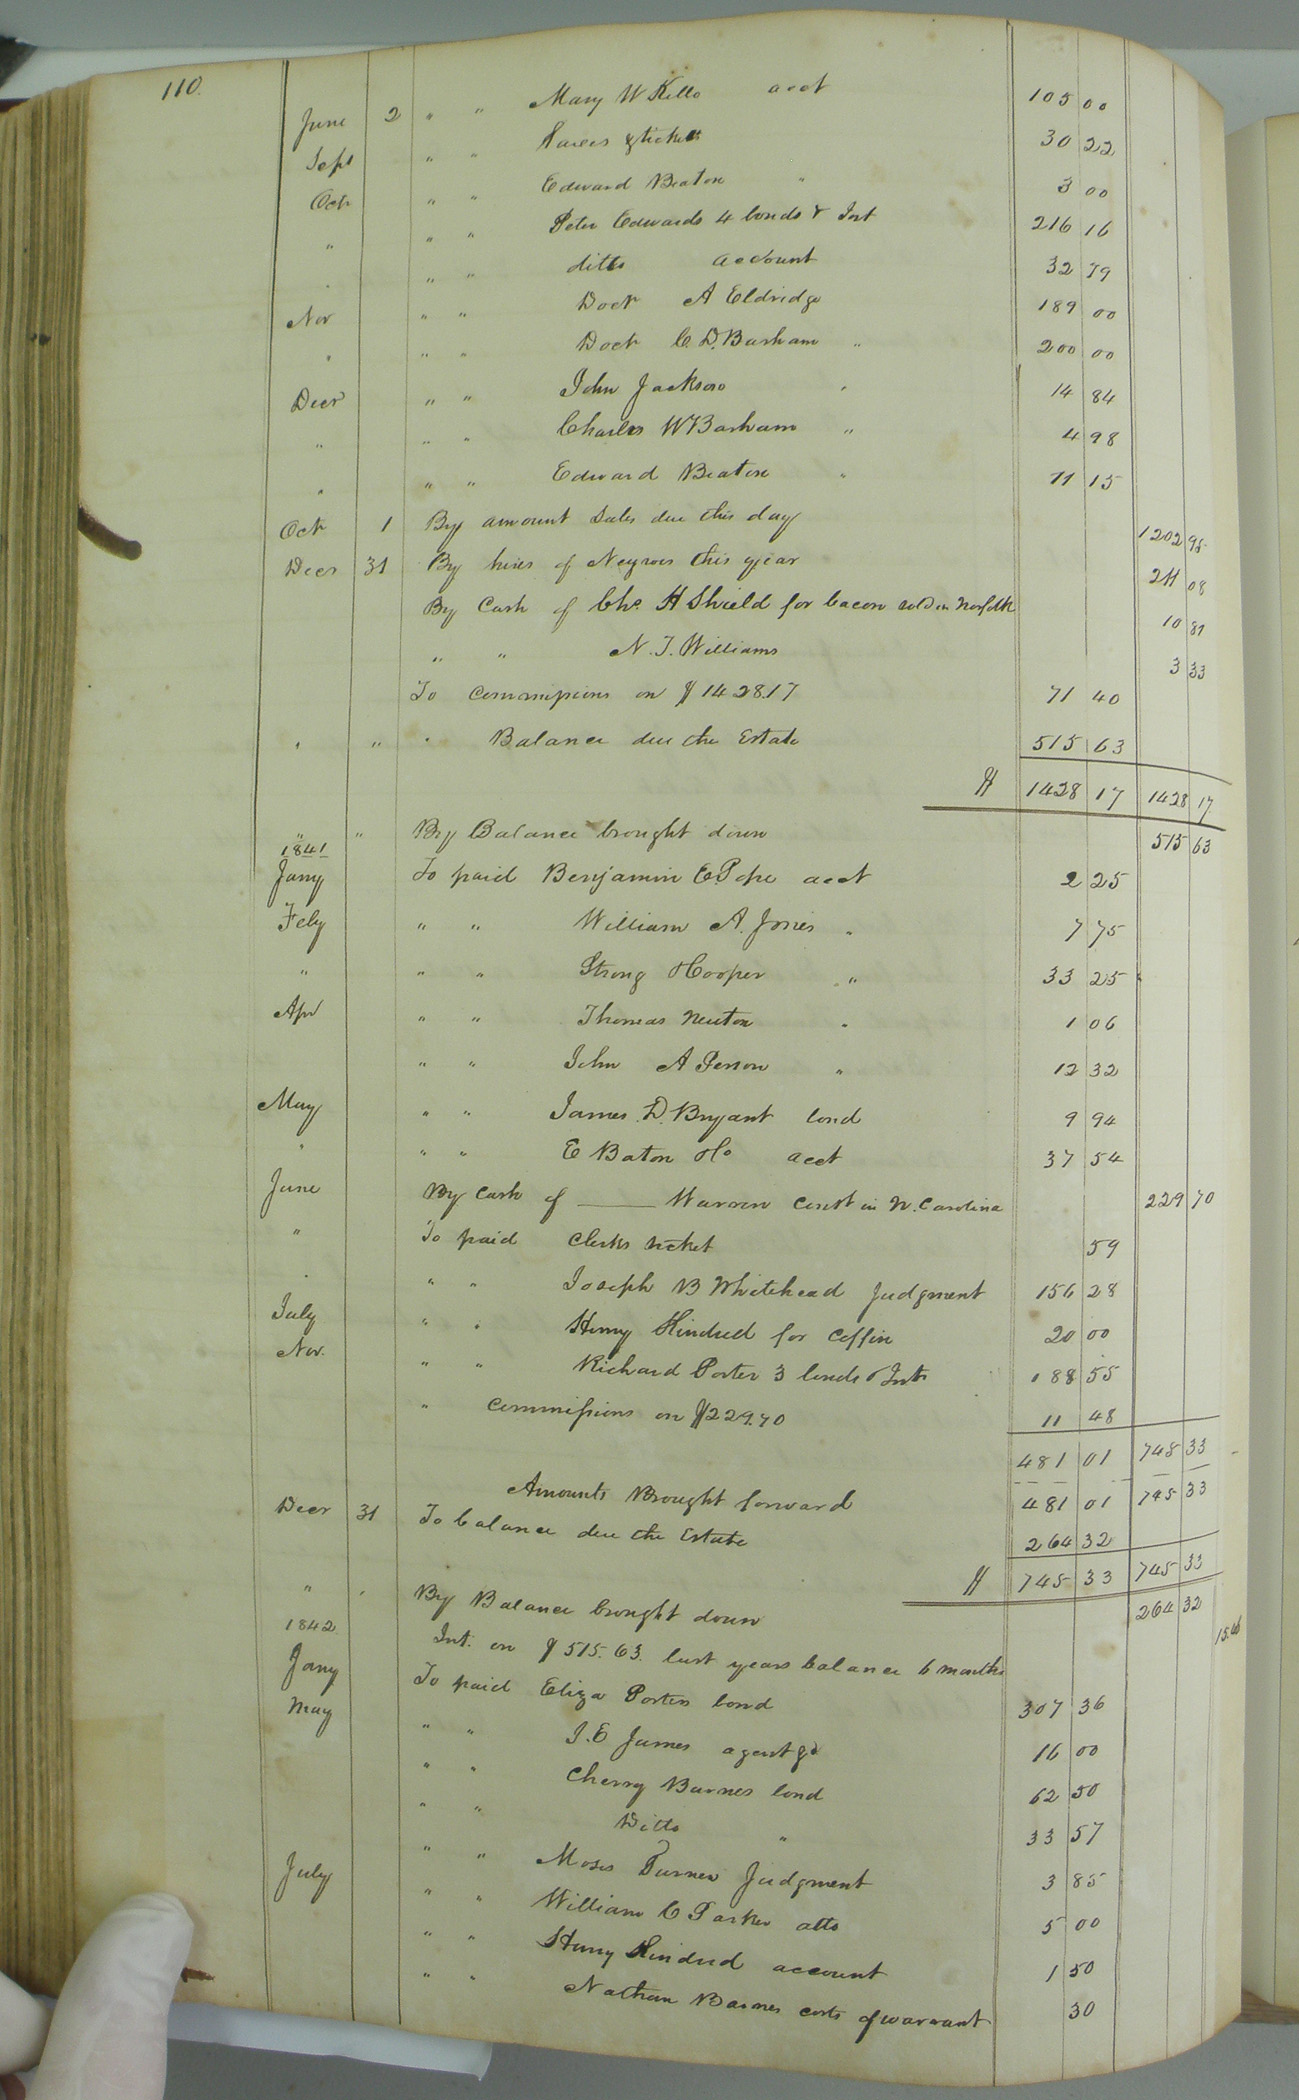 110.
June 2 " " Mary W Kello acct 105 00
Sept " " Taxes & tickets 30 22
Oct " " Edward Beaton " 3 00
" " " Peter Edwards 4 bonds & Int 216 16
" " " ditto account 32 79
Nov " " Doct A Eldridge 189 00
" " " Doct C. D. Barham " 200 00
Decr " " John Jackson " 14 84
" " " Charles W Barham " 4 98
" " " Edward Beaton " 11 15
Oct 1 By amount Sales due this day 1202 95
Decr 31 By hires of Negroes this year 211 08
By Cash of Chs. H Shield for bacon sold in Norfolk 10 81
" " N. T. Williams 3 33
To Commissions on $1428.17 71 40
" " " Balance due the Estate 515 63
$ 1428 17 1428 17
" " By Balance brought down 515 63
1841
Jany To paid Benjamin E. Pope acct 2 25
Feby " " William A. Jones " 7 75
" " " Strong Hooper " 33 25
Apl " " Thomas Newton " 1 06
" " John A Person " 12 32
May " " James D. Bryant bond 9 94
" " " E Baton acct 37 54
June By Cash of —— Warren Const in N. Carolina 229 70
" To paid Clerks ticket 59
" " " Joseph B Whitehead Judgment 156 28
July " " Henry Kindred for Coffin 20 00
Nov. " " Richard Porter 3 bonds & Int 188 55
" Commissions on $229.70 11 48
481 01 745 33
Amounts Brought forward 481 01 745 33
Decr 31 To balance due the Estate 264 32
$ 745 33 745 33
" " By Balance brought down 264 32
1842
Int. on $515.63. last years balance 6 months 15.46
Jany To paid Eliza Porters bond 307 36
May " " J. E James agent 16 00
" " Cherry Barnes bond 62 50
" " Ditto " 33 57
" " Moses Turner Judgment 3 85
July " " William C Parker atto 5 00
" " Henry Kindred account 1 50
" " Nathan Barnes costs of warrant 30